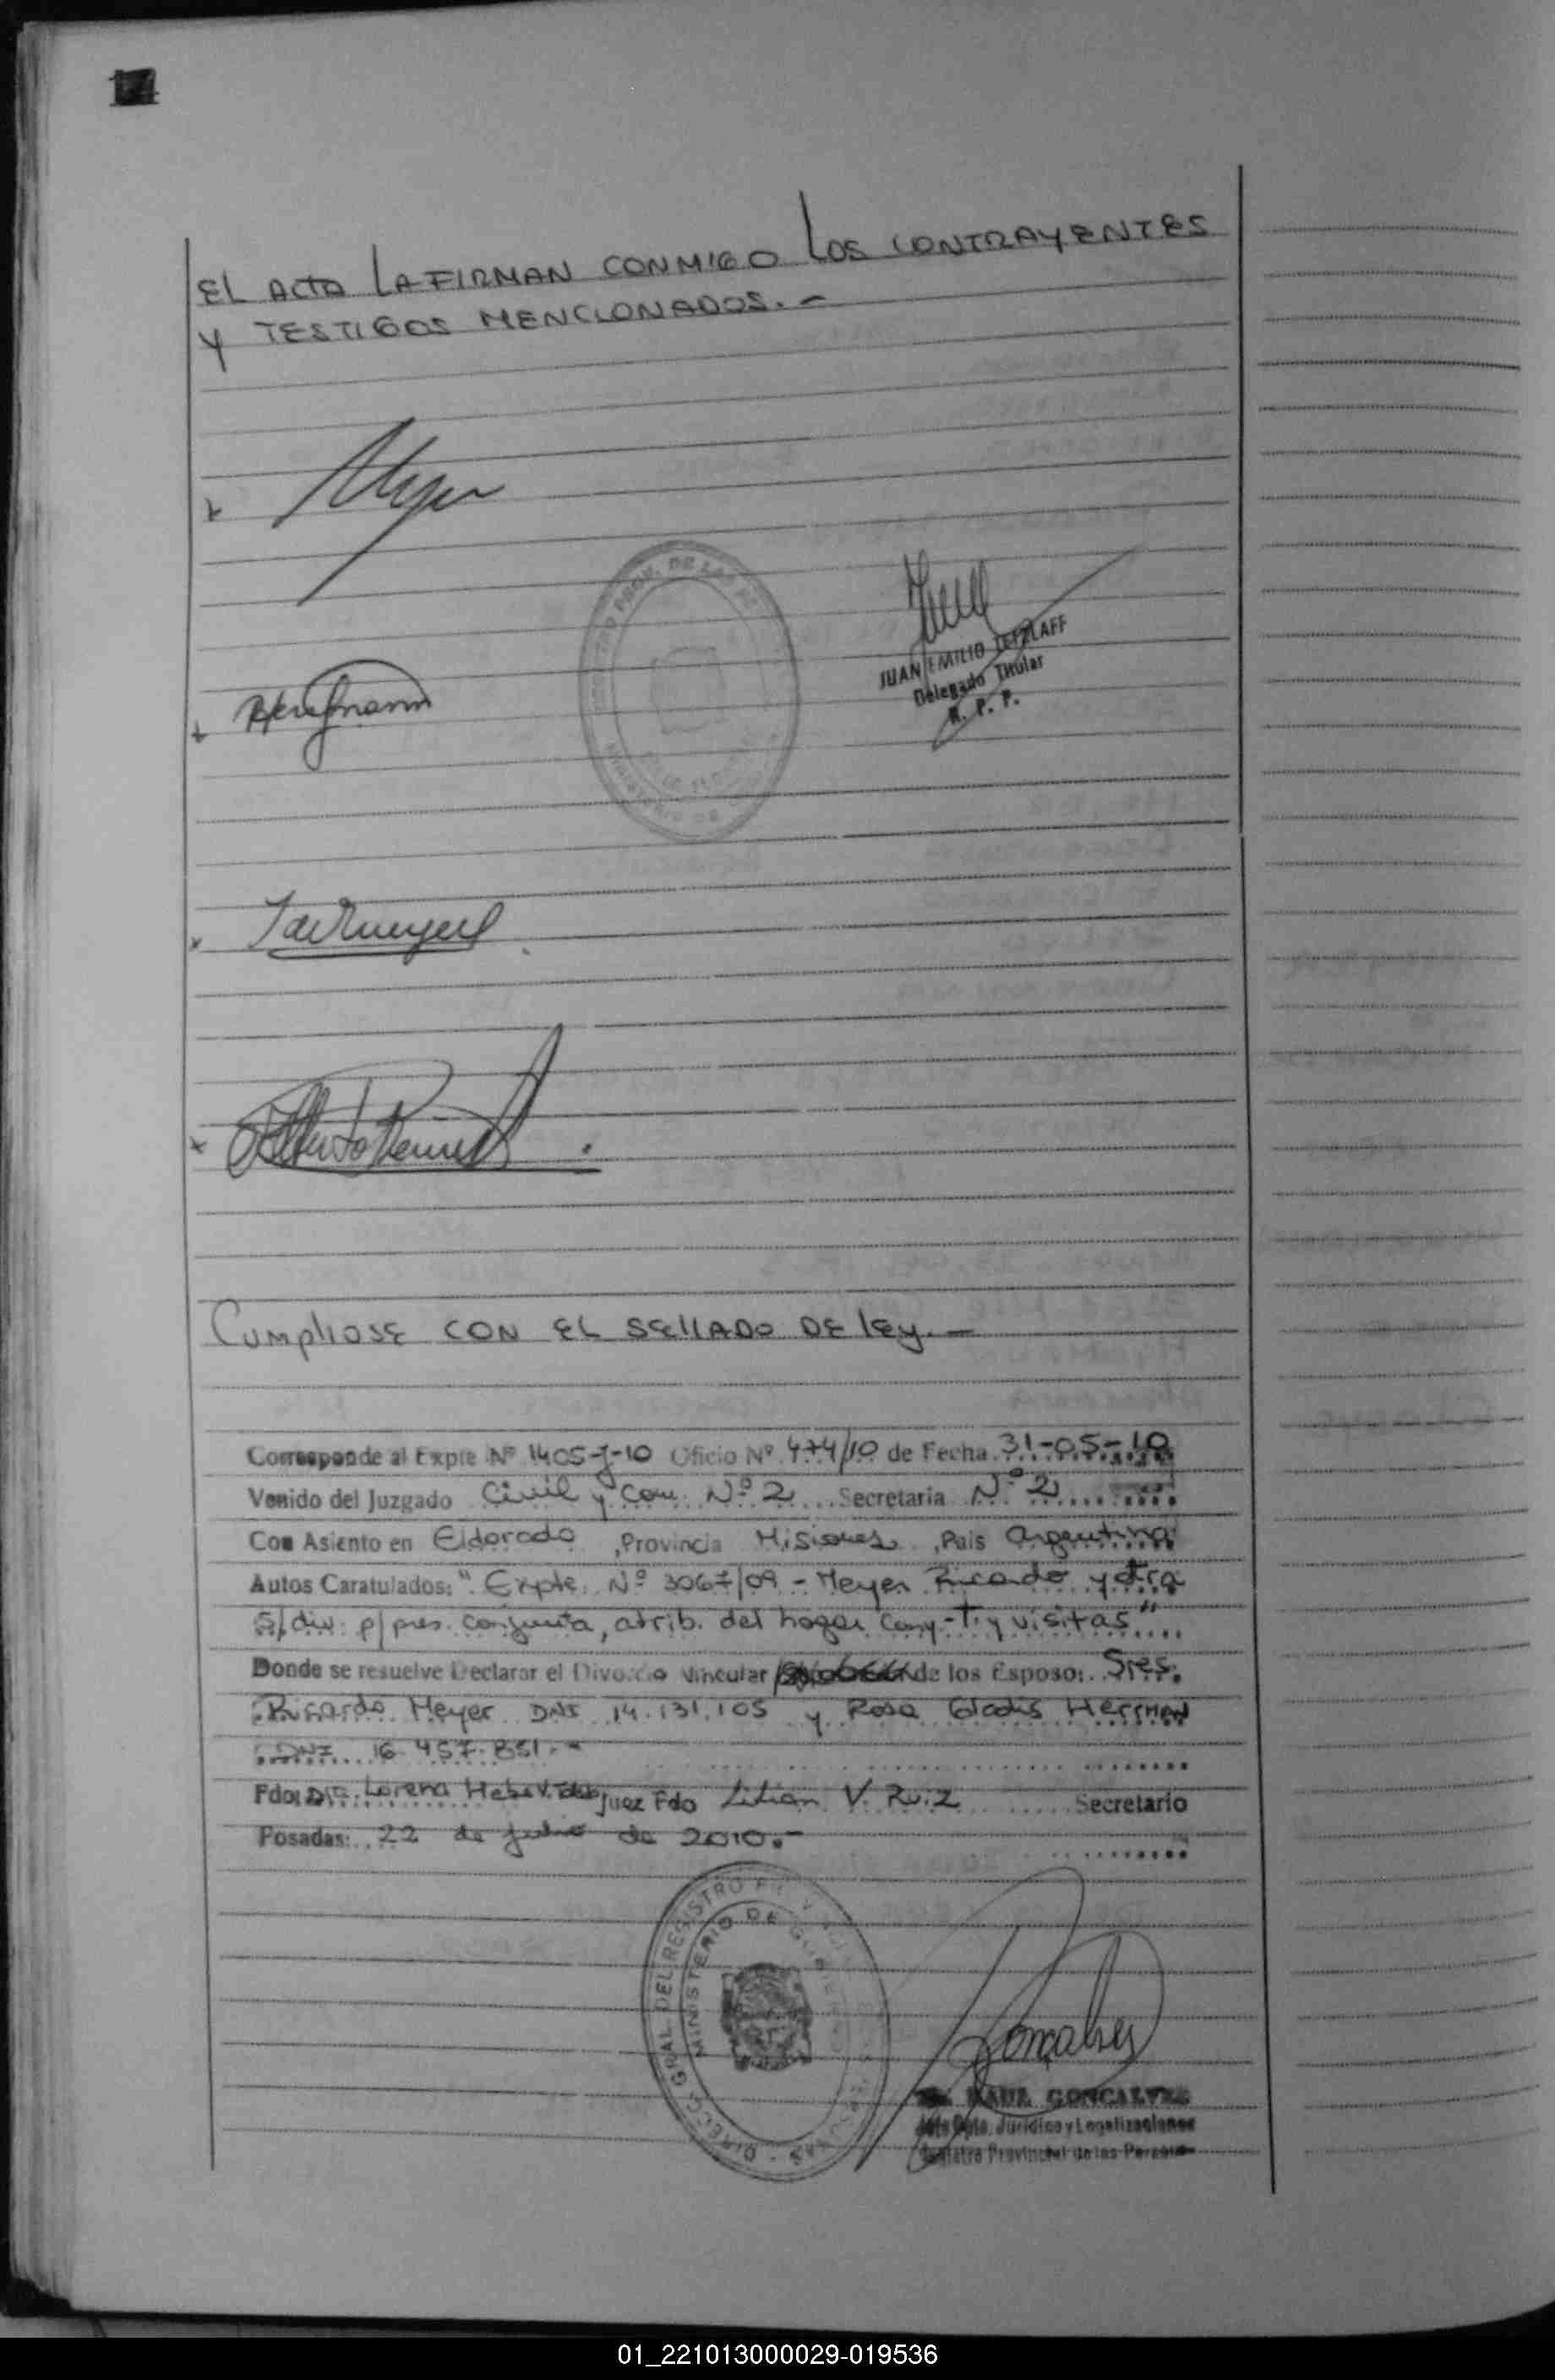 EL ACTA LA FIRMAN CONMIGO LOS CONTRAYENTES
Y TESTIGOS MENCIONADOS.-
Meyer
JUAN EMILIO TETZLAFF
Delegado Titular
R. P. P.
Cumpliose CON EL SELLADO DE ley.-
Corresponde al Expte Nº 1405-J-10 Oficio Nº 474/10 de Fecha 31-05-10
Venido del Juzgado Civil y Com. Nº 2 Secretaria Nº 2
Con Asiento en Eldorado, Provincia Misiones, Pais Argentina
Autos Caratulados: "Expte. Nº 3067/09 - Meyer Ricardo y otra
s/div. p/pres. conjunta, atrib. del hogar cony-T. y visitas"
Donde se resuelve Declarar el Divorcio Vincular de los Esposo: Sres.
Ricardo Meyer DNI 14.131.105 y Rosa Gladis Herrman
DNI 16.457.851.-
Fdo: Dra. Lorena Juez Fdo Lilian V. Ruiz Secretario
Posadas: 22 de de 2010.-
DIRECC. GRAL. DEL REGISTRO
MINISTERIO DE
Goncalves
RAUL GONCALVES
Jefe Dpto. Jurídico y Legalizaciones
Registro Provincial de las Personas
01_221013000029-019536